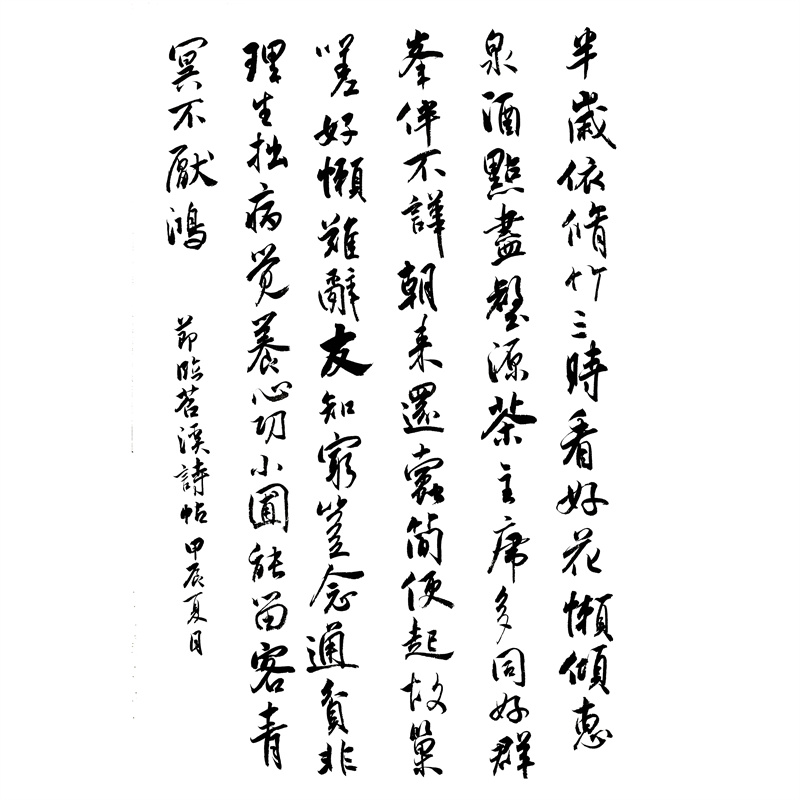 半歲依脩竹三時看好花懶傾惠
泉酒點盡壑源茶主席多同好群
峯伴不譁朝來還蠹簡便起故巢
嗟好懶難辭友知窮豈念通貧非
理生拙病覺養心功小圃能留客青
冥不厭鴻
節臨苕溪詩帖甲辰夏日